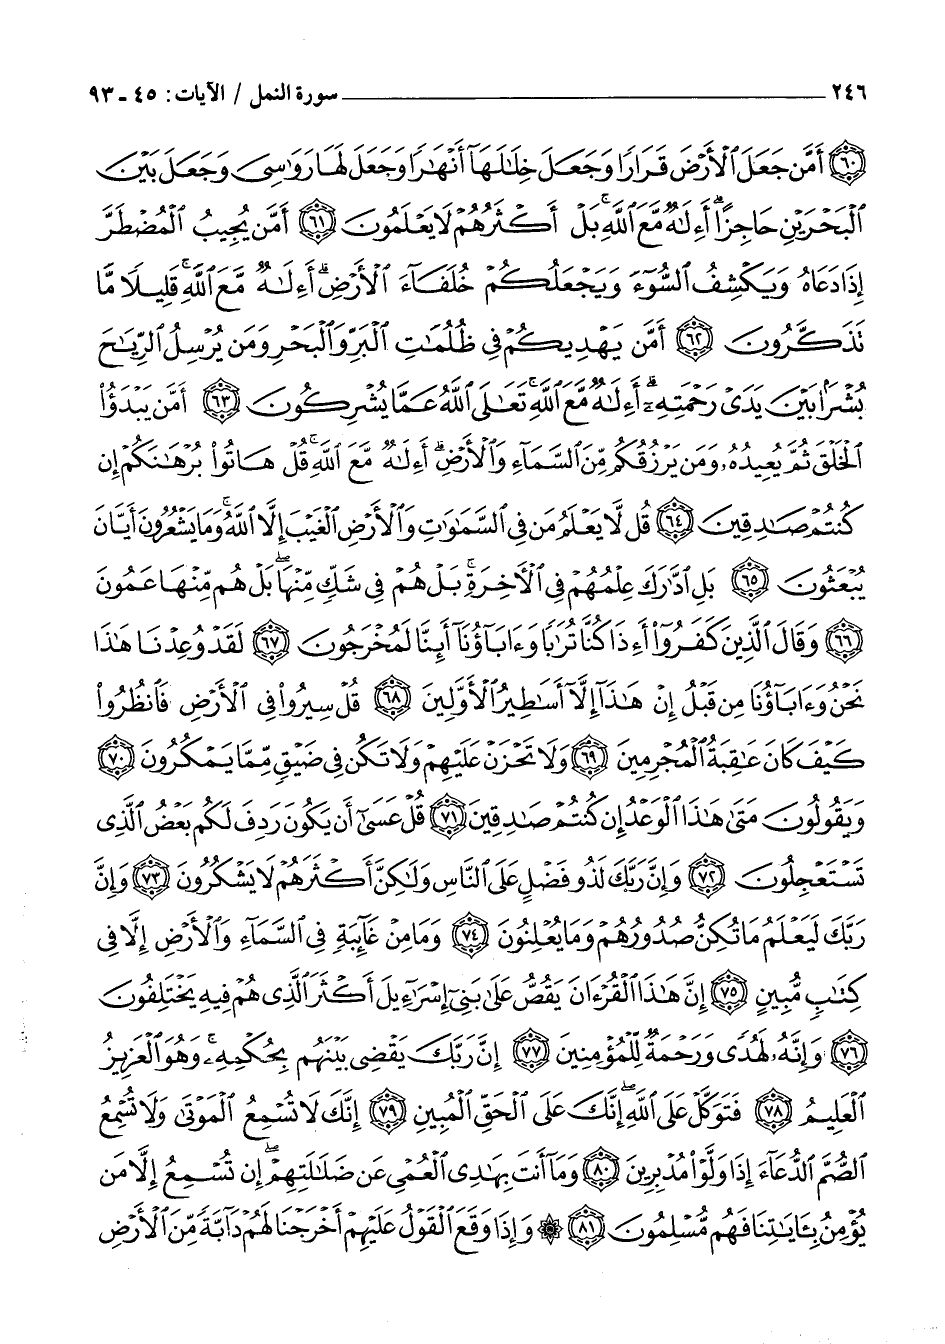 ٢٤٦ سورة النمل / الآيات: ٤٥ - ٩٣
﴿٦٠﴾ أَمَّن جَعَلَ ٱلْأَرْضَ قَرَارًا وَجَعَلَ خِلَٰلَهَآ أَنْهَٰرًا وَجَعَلَ لَهَا رَوَٰسِىَ وَجَعَلَ بَيْنَ
ٱلْبَحْرَيْنِ حَاجِزًا ۗ أَءِلَٰهٌ مَّعَ ٱللَّهِ ۚ بَلْ أَكْثَرُهُمْ لَا يَعْلَمُونَ ﴿٦١﴾ أَمَّن يُجِيبُ ٱلْمُضْطَرَّ
إِذَا دَعَاهُ وَيَكْشِفُ ٱلسُّوٓءَ وَيَجْعَلُكُمْ خُلَفَآءَ ٱلْأَرْضِ ۗ أَءِلَٰهٌ مَّعَ ٱللَّهِ ۚ قَلِيلًا مَّا
تَذَكَّرُونَ ﴿٦٢﴾ أَمَّن يَهْدِيكُمْ فِى ظُلُمَٰتِ ٱلْبَرِّ وَٱلْبَحْرِ وَمَن يُرْسِلُ ٱلرِّيَٰحَ
بُشْرًۢا بَيْنَ يَدَىْ رَحْمَتِهِۦٓ ۗ أَءِلَٰهٌ مَّعَ ٱللَّهِ ۚ تَعَٰلَى ٱللَّهُ عَمَّا يُشْرِكُونَ ﴿٦٣﴾ أَمَّن يَبْدَؤُا۟
ٱلْخَلْقَ ثُمَّ يُعِيدُهُۥ وَمَن يَرْزُقُكُم مِّنَ ٱلسَّمَآءِ وَٱلْأَرْضِ ۗ أَءِلَٰهٌ مَّعَ ٱللَّهِ ۚ قُلْ هَاتُوا۟ بُرْهَٰنَكُمْ إِن
كُنتُمْ صَٰدِقِينَ ﴿٦٤﴾ قُل لَّا يَعْلَمُ مَن فِى ٱلسَّمَٰوَٰتِ وَٱلْأَرْضِ ٱلْغَيْبَ إِلَّا ٱللَّهُ ۚ وَمَا يَشْعُرُونَ أَيَّانَ
يُبْعَثُونَ ﴿٦٥﴾ بَلِ ٱدَّٰرَكَ عِلْمُهُمْ فِى ٱلْءَاخِرَةِ ۚ بَلْ هُمْ فِى شَكٍّ مِّنْهَا ۖ بَلْ هُم مِّنْهَا عَمُونَ
﴿٦٦﴾ وَقَالَ ٱلَّذِينَ كَفَرُوٓا۟ أَءِذَا كُنَّا تُرَٰبًا وَءَابَآؤُنَآ أَئِنَّا لَمُخْرَجُونَ ﴿٦٧﴾ لَقَدْ وُعِدْنَا هَٰذَا
نَحْنُ وَءَابَآؤُنَا مِن قَبْلُ إِنْ هَٰذَآ إِلَّآ أَسَٰطِيرُ ٱلْأَوَّلِينَ ﴿٦٨﴾ قُلْ سِيرُوا۟ فِى ٱلْأَرْضِ فَٱنظُرُوا۟
كَيْفَ كَانَ عَٰقِبَةُ ٱلْمُجْرِمِينَ ﴿٦٩﴾ وَلَا تَحْزَنْ عَلَيْهِمْ وَلَا تَكُن فِى ضَيْقٍ مِّمَّا يَمْكُرُونَ ﴿٧٠﴾
وَيَقُولُونَ مَتَىٰ هَٰذَا ٱلْوَعْدُ إِن كُنتُمْ صَٰدِقِينَ ﴿٧١﴾ قُلْ عَسَىٰٓ أَن يَكُونَ رَدِفَ لَكُم بَعْضُ ٱلَّذِى
تَسْتَعْجِلُونَ ﴿٧٢﴾ وَإِنَّ رَبَّكَ لَذُو فَضْلٍ عَلَى ٱلنَّاسِ وَلَٰكِنَّ أَكْثَرَهُمْ لَا يَشْكُرُونَ ﴿٧٣﴾ وَإِنَّ
رَبَّكَ لَيَعْلَمُ مَا تُكِنُّ صُدُورُهُمْ وَمَا يُعْلِنُونَ ﴿٧٤﴾ وَمَا مِنْ غَآئِبَةٍ فِى ٱلسَّمَآءِ وَٱلْأَرْضِ إِلَّا فِى
كِتَٰبٍ مُّبِينٍ ﴿٧٥﴾ إِنَّ هَٰذَا ٱلْقُرْءَانَ يَقُصُّ عَلَىٰ بَنِىٓ إِسْرَٰٓءِيلَ أَكْثَرَ ٱلَّذِى هُمْ فِيهِ يَخْتَلِفُونَ
﴿٧٦﴾ وَإِنَّهُۥ لَهُدًى وَرَحْمَةٌ لِّلْمُؤْمِنِينَ ﴿٧٧﴾ إِنَّ رَبَّكَ يَقْضِى بَيْنَهُم بِحُكْمِهِۦ ۚ وَهُوَ ٱلْعَزِيزُ
ٱلْعَلِيمُ ﴿٧٨﴾ فَتَوَكَّلْ عَلَى ٱللَّهِ ۖ إِنَّكَ عَلَى ٱلْحَقِّ ٱلْمُبِينِ ﴿٧٩﴾ إِنَّكَ لَا تُسْمِعُ ٱلْمَوْتَىٰ وَلَا تُسْمِعُ
ٱلصُّمَّ ٱلدُّعَآءَ إِذَا وَلَّوْا۟ مُدْبِرِينَ ﴿٨٠﴾ وَمَآ أَنتَ بِهَٰدِى ٱلْعُمْىِ عَن ضَلَٰلَتِهِمْ ۖ إِن تُسْمِعُ إِلَّا مَن
يُؤْمِنُ بِـَٔايَٰتِنَا فَهُم مُّسْلِمُونَ ﴿٨١﴾ ۞ وَإِذَا وَقَعَ ٱلْقَوْلُ عَلَيْهِمْ أَخْرَجْنَا لَهُمْ دَآبَّةً مِّنَ ٱلْأَرْضِ